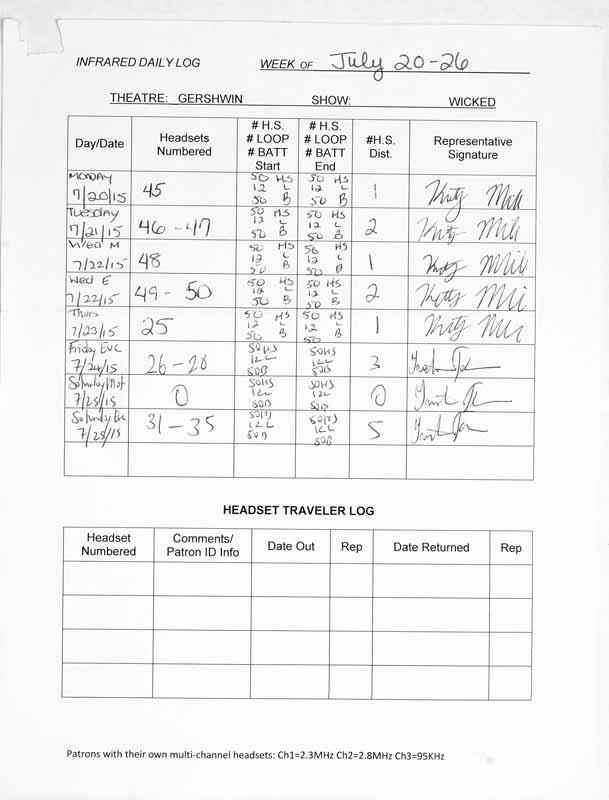 INFRARED DAILY LOG WEEK OF July 20-26
THEATRE: GERSHWIN SHOW: WICKED
Day/Date Headsets Numbered # H.S. # LOOP # BATT Start # H.S. # LOOP # BATT End #H.S. Dist. Representative Signature
MONDAY 7/20/15 45 50 HS 12 L 50 B 50 HS 12 L 50 B 1
Tuesday 7/21/15 46-47 50 HS 12 L 50 B 50 HS 12 L 50 B 2
Wed M 7/22/15 48 50 HS 12 L 50 B 50 HS 12 L 50 B 1
Wed E 7/22/15 49-50 50 HS 12 L 50 B 50 HS 12 L 50 B 2
Thurs 7/23/15 25 50 HS 12 L 50 B 50 HS 12 L 50 1
Friday Eve 7/24/15 26-28 50HS 12L 50B 50HS 12L 50B 3
Saturday Mat 7/25/15 0 50HS 12L 50B 50HS 12L 50B 0
Saturday Eve 7/25/15 31-35 50HS 12L 50B 50HS 12L 50B 5
HEADSET TRAVELER LOG
Headset Numbered Comments/ Patron ID Info Date Out Rep Date Returned Rep
Patrons with their own multi-channel headsets: Ch1=2.3MHz Ch2=2.8MHz Ch3=95KHz